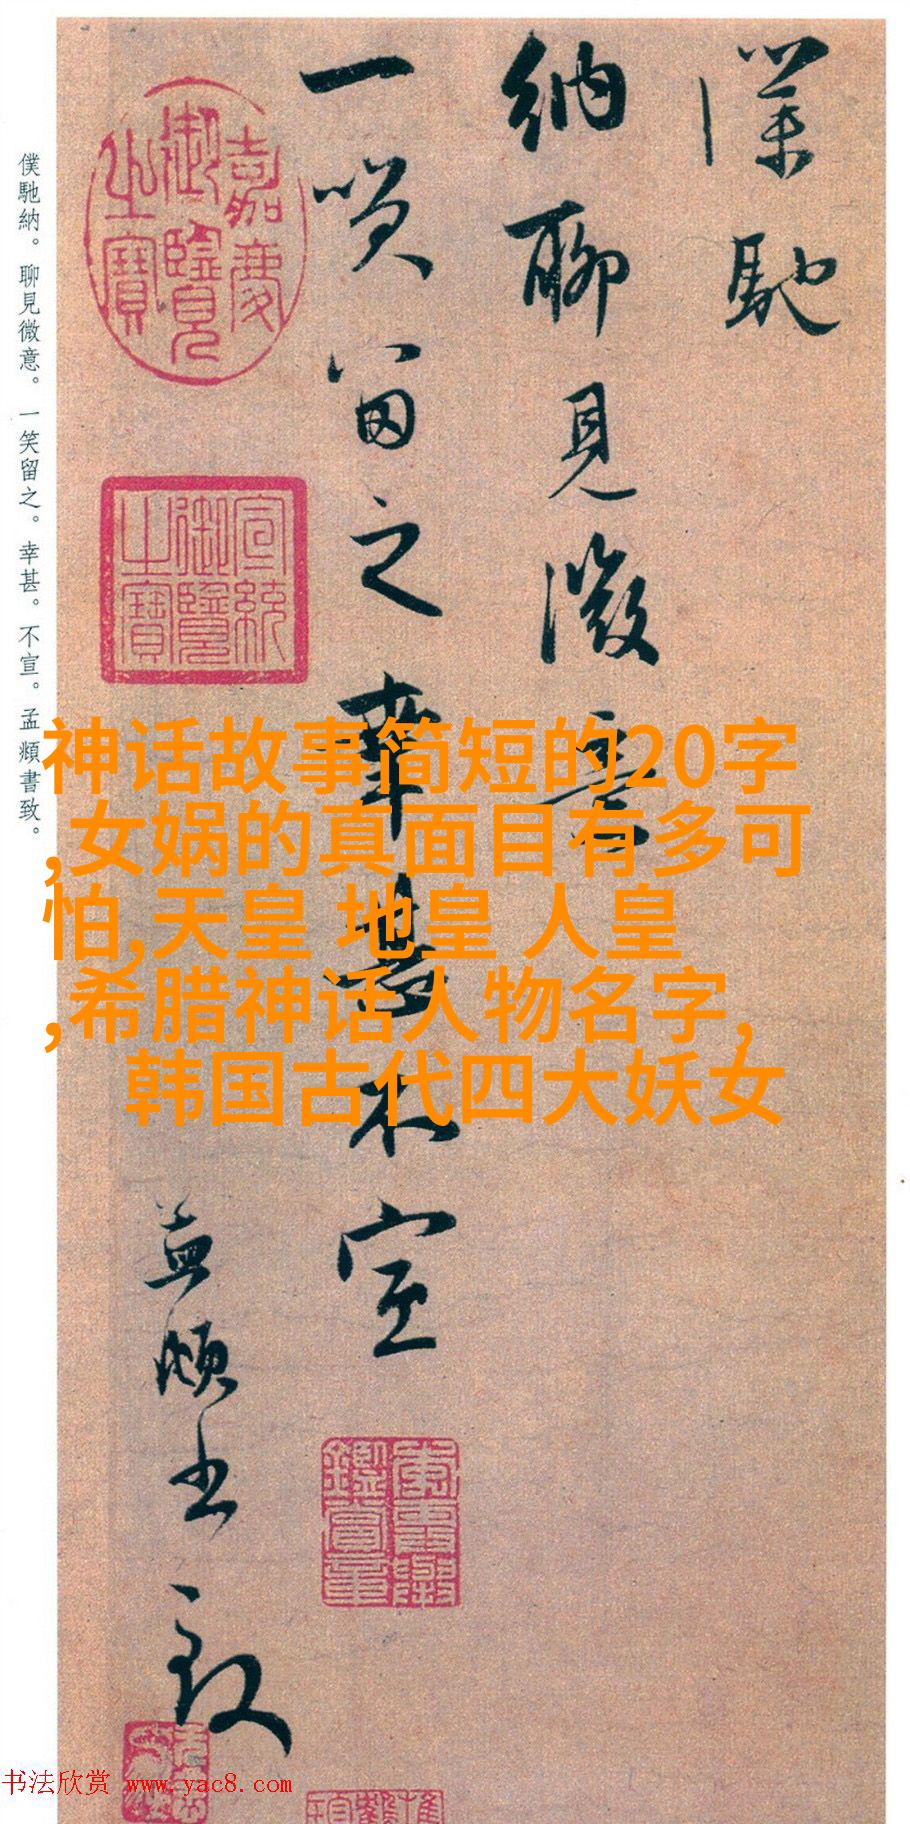 僕馳
納聊見微意
一笑留之幸甚不宣
孟頫書致
嘉慶御覽之寶
宣統御覽之寶
僕馳納。聊見微意。一笑留之。幸甚。不宣。孟頫書致。
神话故事简短的20字
,女娲的真面目有多可
怕,天皇 地皇 人皇
,希腊神话人物名字,
韩国古代四大妖女
书法欣赏 www.yac8.com